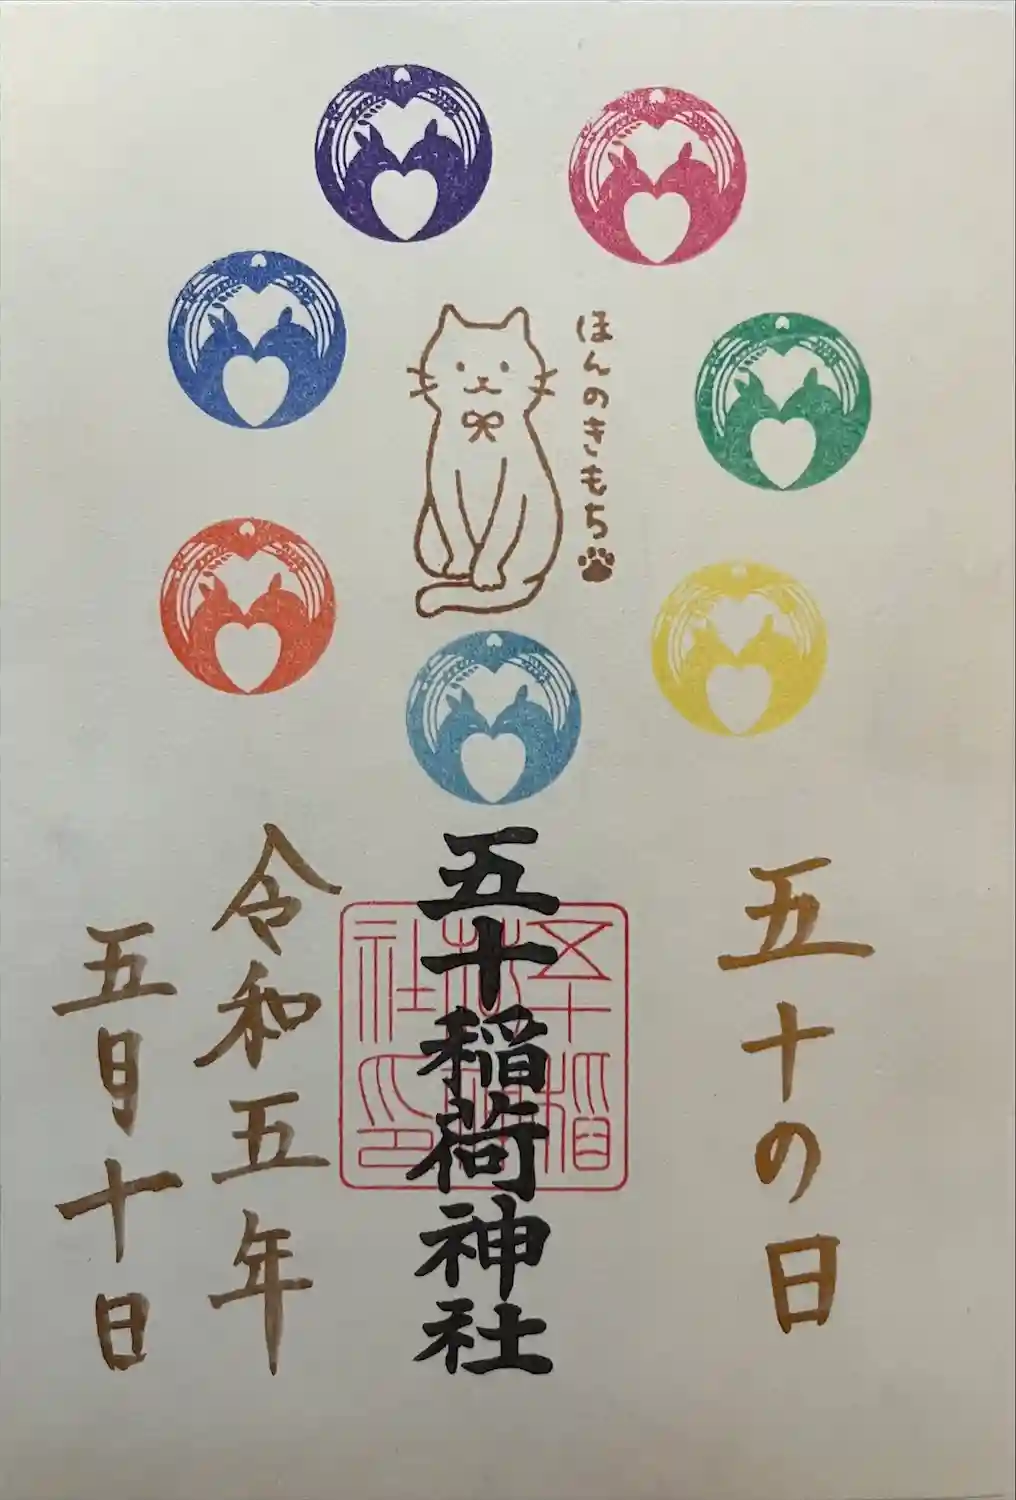 ほんのきもち
五十の日
五十稲荷神社
五十稲荷神社印
令和五年
五月十日